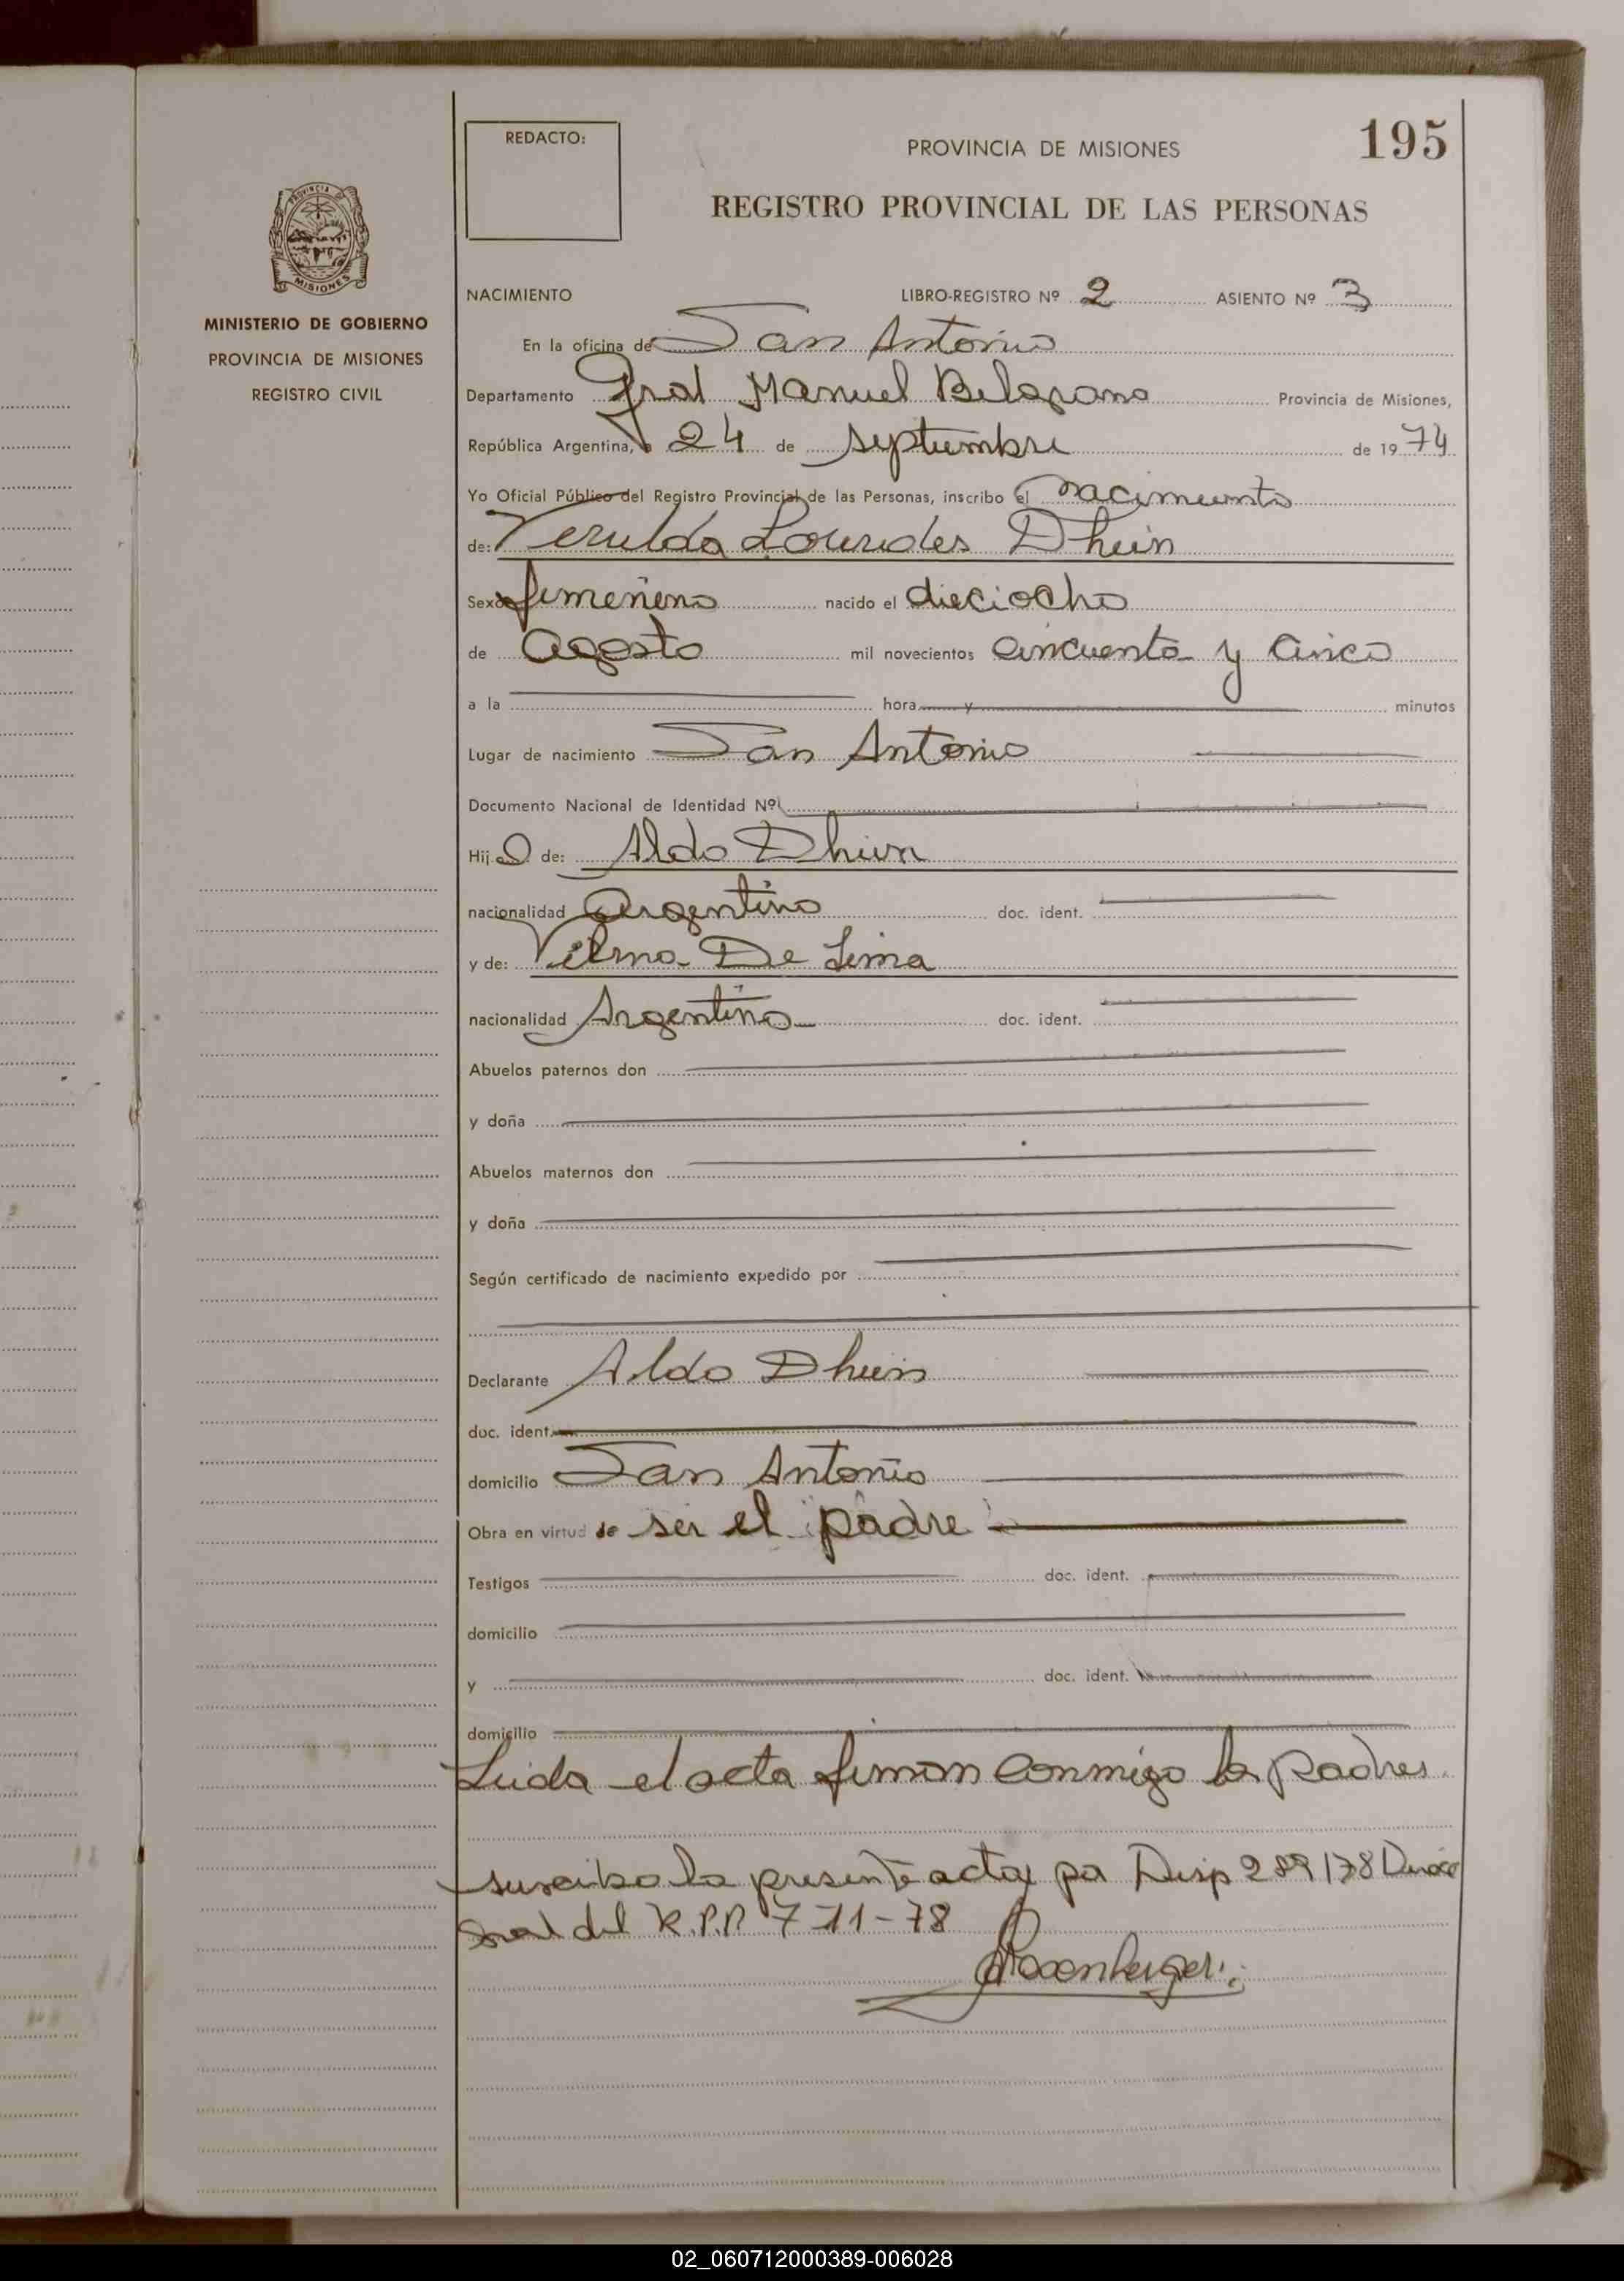 REDACTO:
PROVINCIA DE MISIONES
195
REGISTRO PROVINCIAL DE LAS PERSONAS
PROVINCIA DE
MISIONES
MINISTERIO DE GOBIERNO
PROVINCIA DE MISIONES
REGISTRO CIVIL
NACIMIENTO LIBRO-REGISTRO Nº 2 ASIENTO Nº 3
En la oficina de San Antonio
Departamento Gral Manuel Belgrano Provincia de Misiones,
República Argentina, a 24 de septiembre de 1974
Yo Oficial Público del Registro Provincial de las Personas, inscribo el nacimiento
de: Lourdes Dhein
Sexo femenino nacido el dieciocho
de agosto mil novecientos cincuenta y cinco
a la hora y minutos
Lugar de nacimiento San Antonio
Documento Nacional de Identidad Nº
Hij a de: Aldo Dhein
nacionalidad argentino doc. ident.
y de: Vilma De Lima
nacionalidad Argentina doc. ident.
Abuelos paternos don
y doña
Abuelos maternos don
y doña
Según certificado de nacimiento expedido por
Declarante Aldo Dhein
doc. ident.
domicilio San Antonio
Obra en virtud de ser el padre
Testigos doc. ident.
domicilio
y doc. ident.
domicilio
Leida el acta firman conmigo los padres.
suscribo la presente acta por Disp 289/78
del R.P.P. 7-11-78
02_060712000389-006028